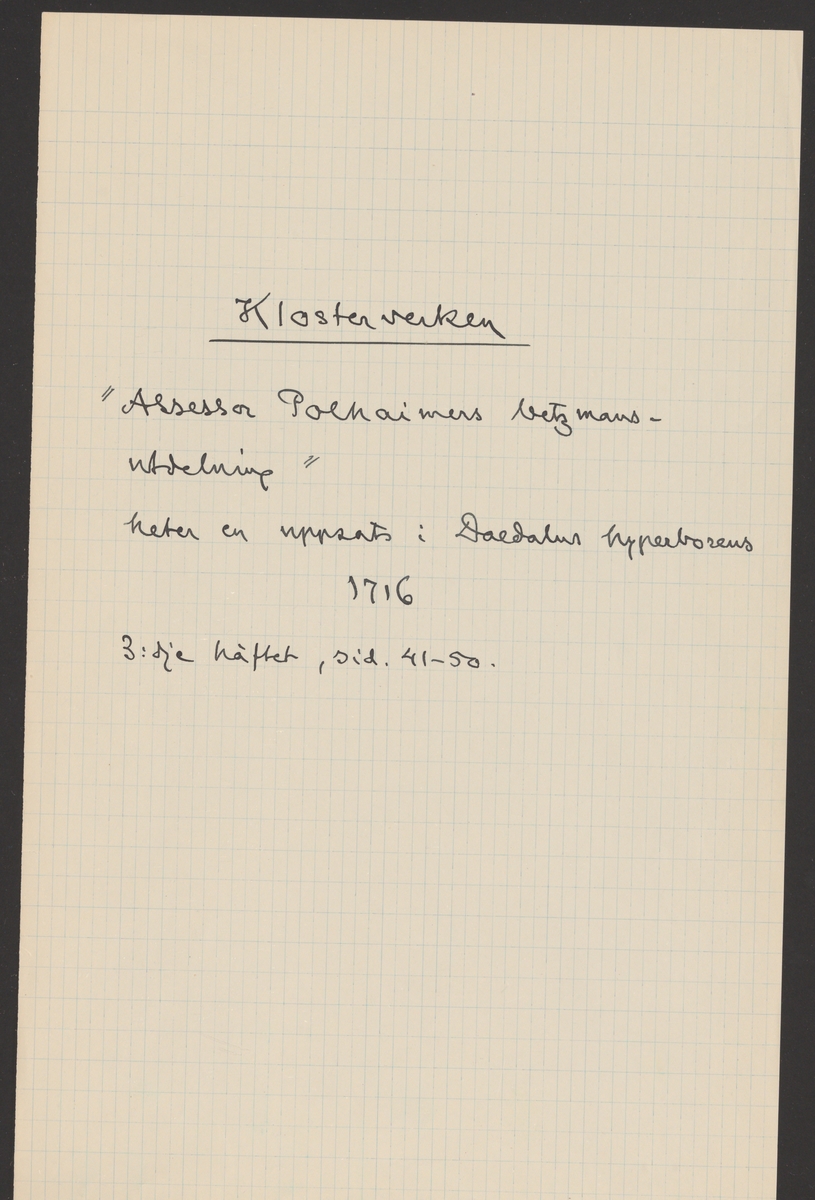 Klosterverken
"Assessor Polhaimers betzmans-
utdelning"
heter en uppsats i Daedalus hyperboreus
1716
3:dje häftet, sid. 41-50.